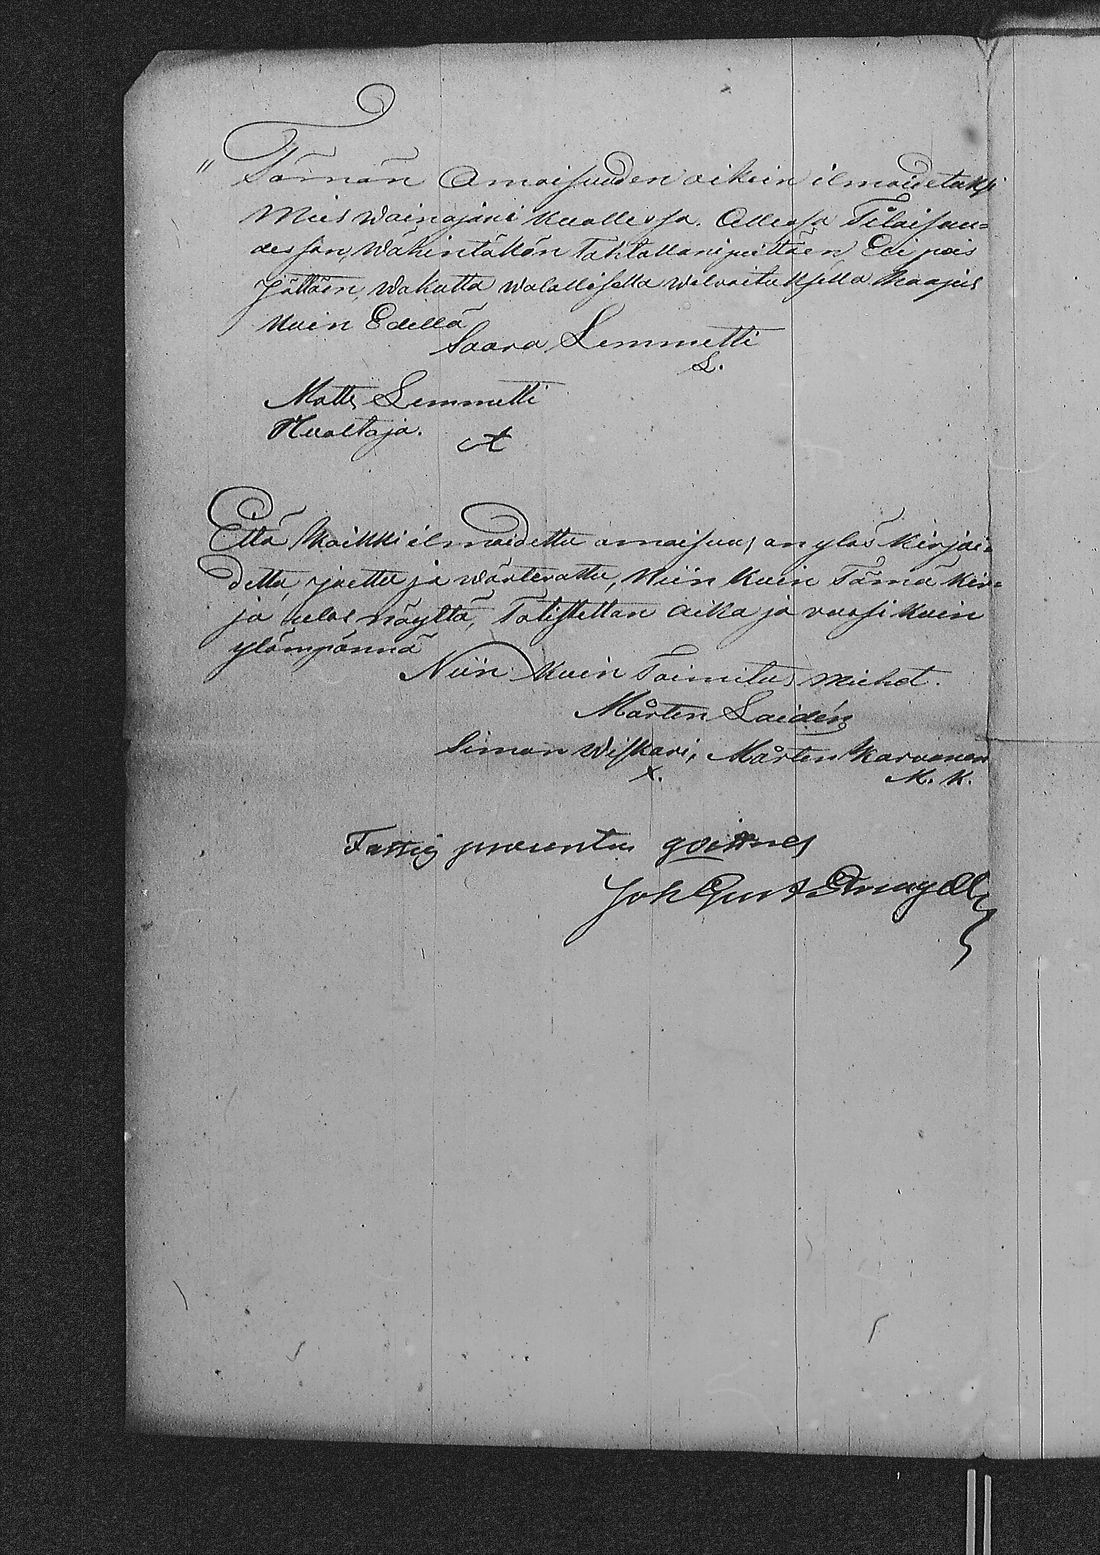 " Tämän Omaisuuden oikein ilmoidetuksi
Mies wainajani kuollessa. Ollessa Tilaisuu=
dessan, wähintäkön tahtallani peittäen, Eli pois
jättäen, wakutta walallisella welvoituksella
kuin Edellä
Saara Lemmetti
S. L.
Matts Lemmetti
Huoltaja.
Että kaikki ilmoidettu omaisuus on ylös kirjoi=
dettu, jaettu ja wärterattu, Niin kuin Tämä kir=
ja ulos näyttä, Totistettan aika ja vuosi kuin
ylämpännä
Niin kuin Toimitus miehet.
Mårten Laidén
Simon Wiskari, Mårten Karvonen
X. M. K.
Fattig procenten qvitteras
Joh Gust